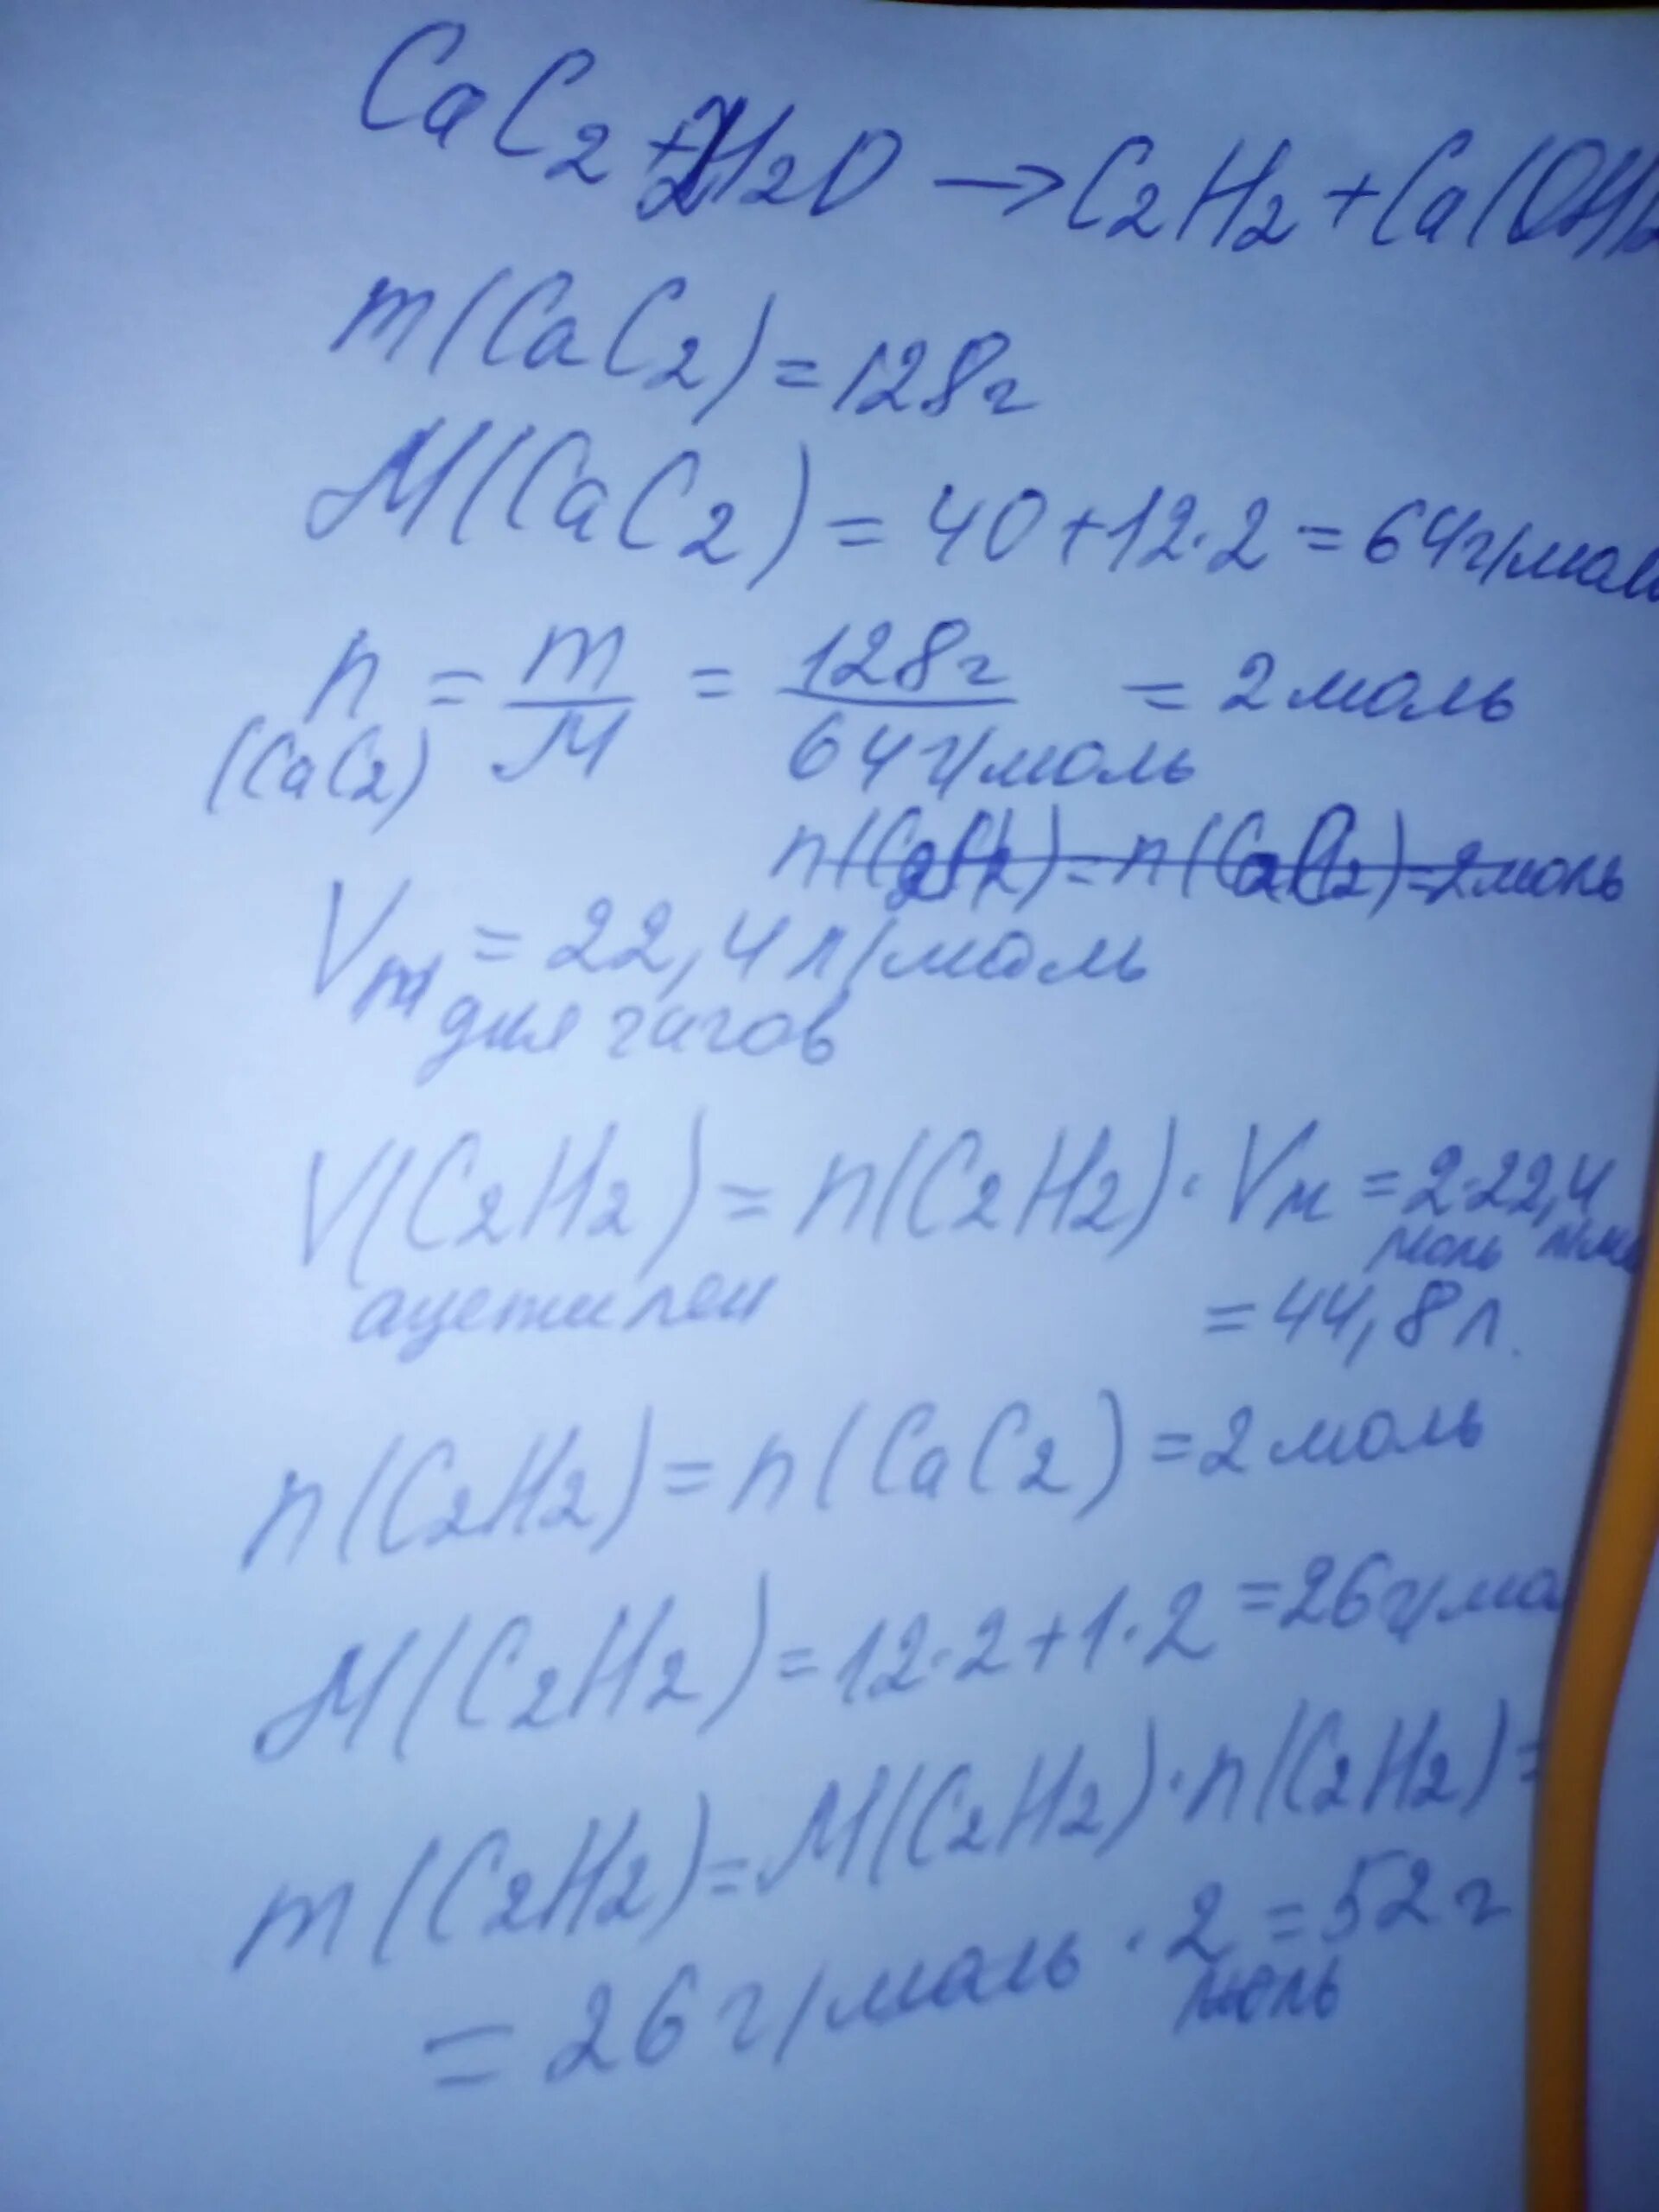 CaC2 + 2H2O → C2H2 + Ca(OH)2
m(CaC2) = 128г
M(CaC2) = 40 + 12·2 = 64г/моль
n = m/M = 128г / 64г/моль = 2 моль
(CaC2)
n(C2H2) = n(CaC2) = 2 моль
Vm = 22,4 л/моль
для газов
V(C2H2) = n(C2H2) · Vm = 2·22,4
моль
ацетилен = 44,8 л.
n(C2H2) = n(CaC2) = 2 моль
M(C2H2) = 12·2 + 1·2 = 26г/мо
m(C2H2) = M(C2H2) · n(C2H2) =
= 26 г/моль · 2 = 52 г
моль